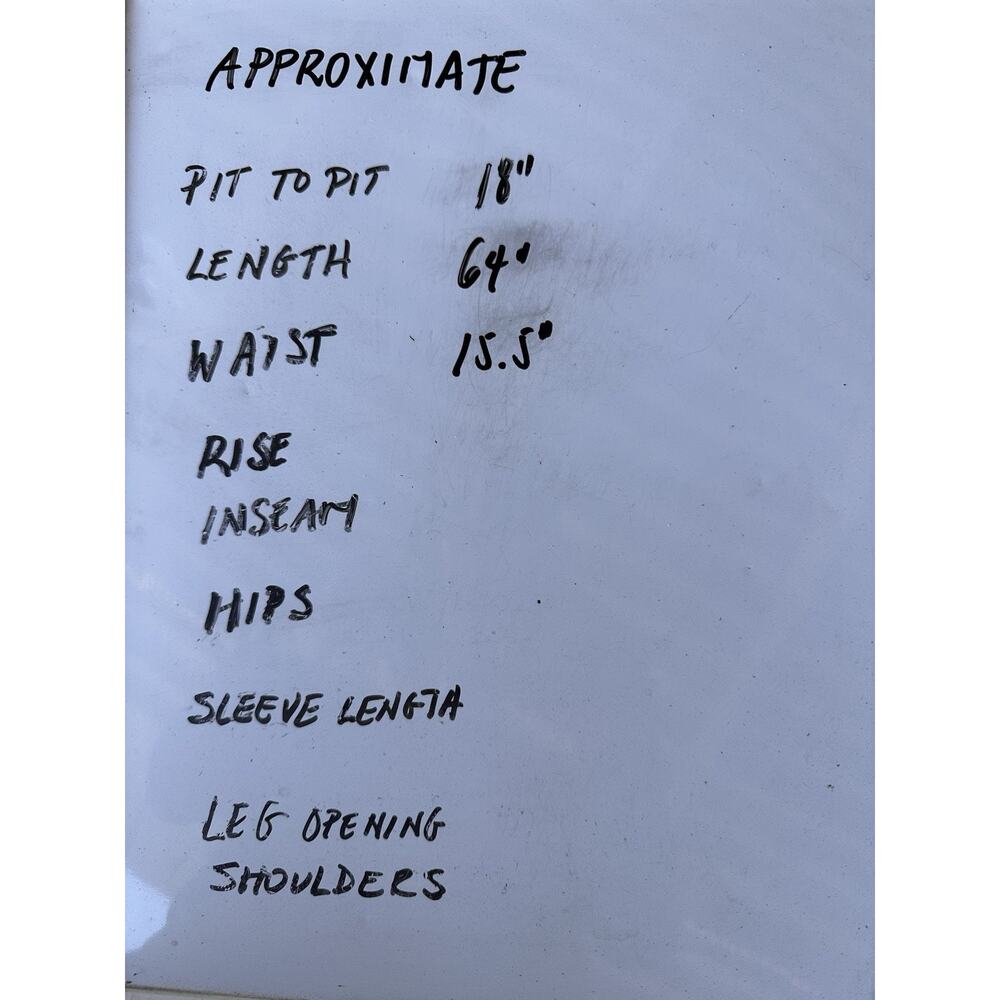 APPROXIMATE
PIT TO PIT 18"
LENGTH 64"
WAIST 15.5"
RISE
INSEAM
HIPS
SLEEVE LENGTH
LEG OPENING
SHOULDERS